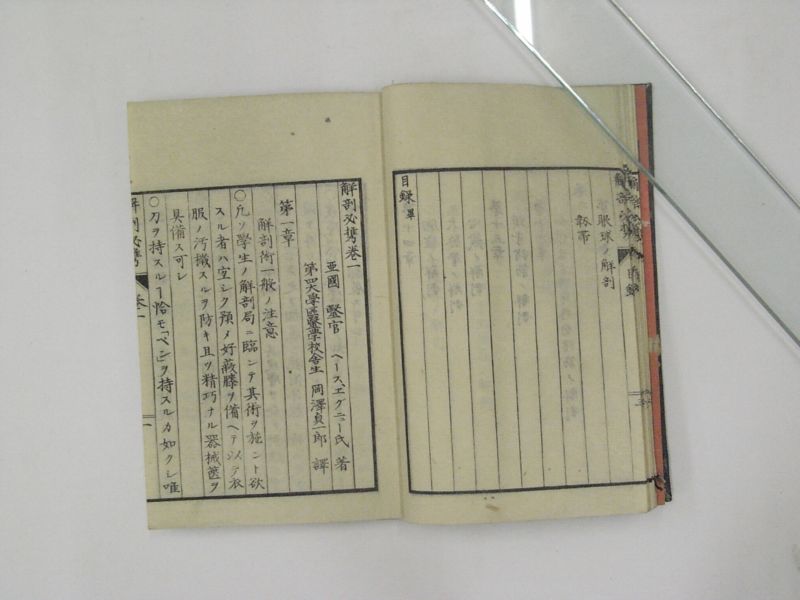 眼球ノ解剖
靱帯
目録 畢
解剖必携巻一
亜國 醫官 ヘースエグニー氏 著
第四大学區醫學校舎生 岡澤貞一郎 譯
第一章
解剖術一般ノ注意
○凢ソ學生ノ解剖局ニ臨ンテ其術ヲ施ント欲
スル者ハ宜シク預メ好蔽膝ヲ備ヘテ以テ衣
服ノ汚擫スルヲ防キ且ツ精巧ナル器械匧ヲ
具備ス可シ
○刀ヲ持スルヿ恰モ「ペン」ヲ持スルカ如クシ唯
解剖必携 巻一 一